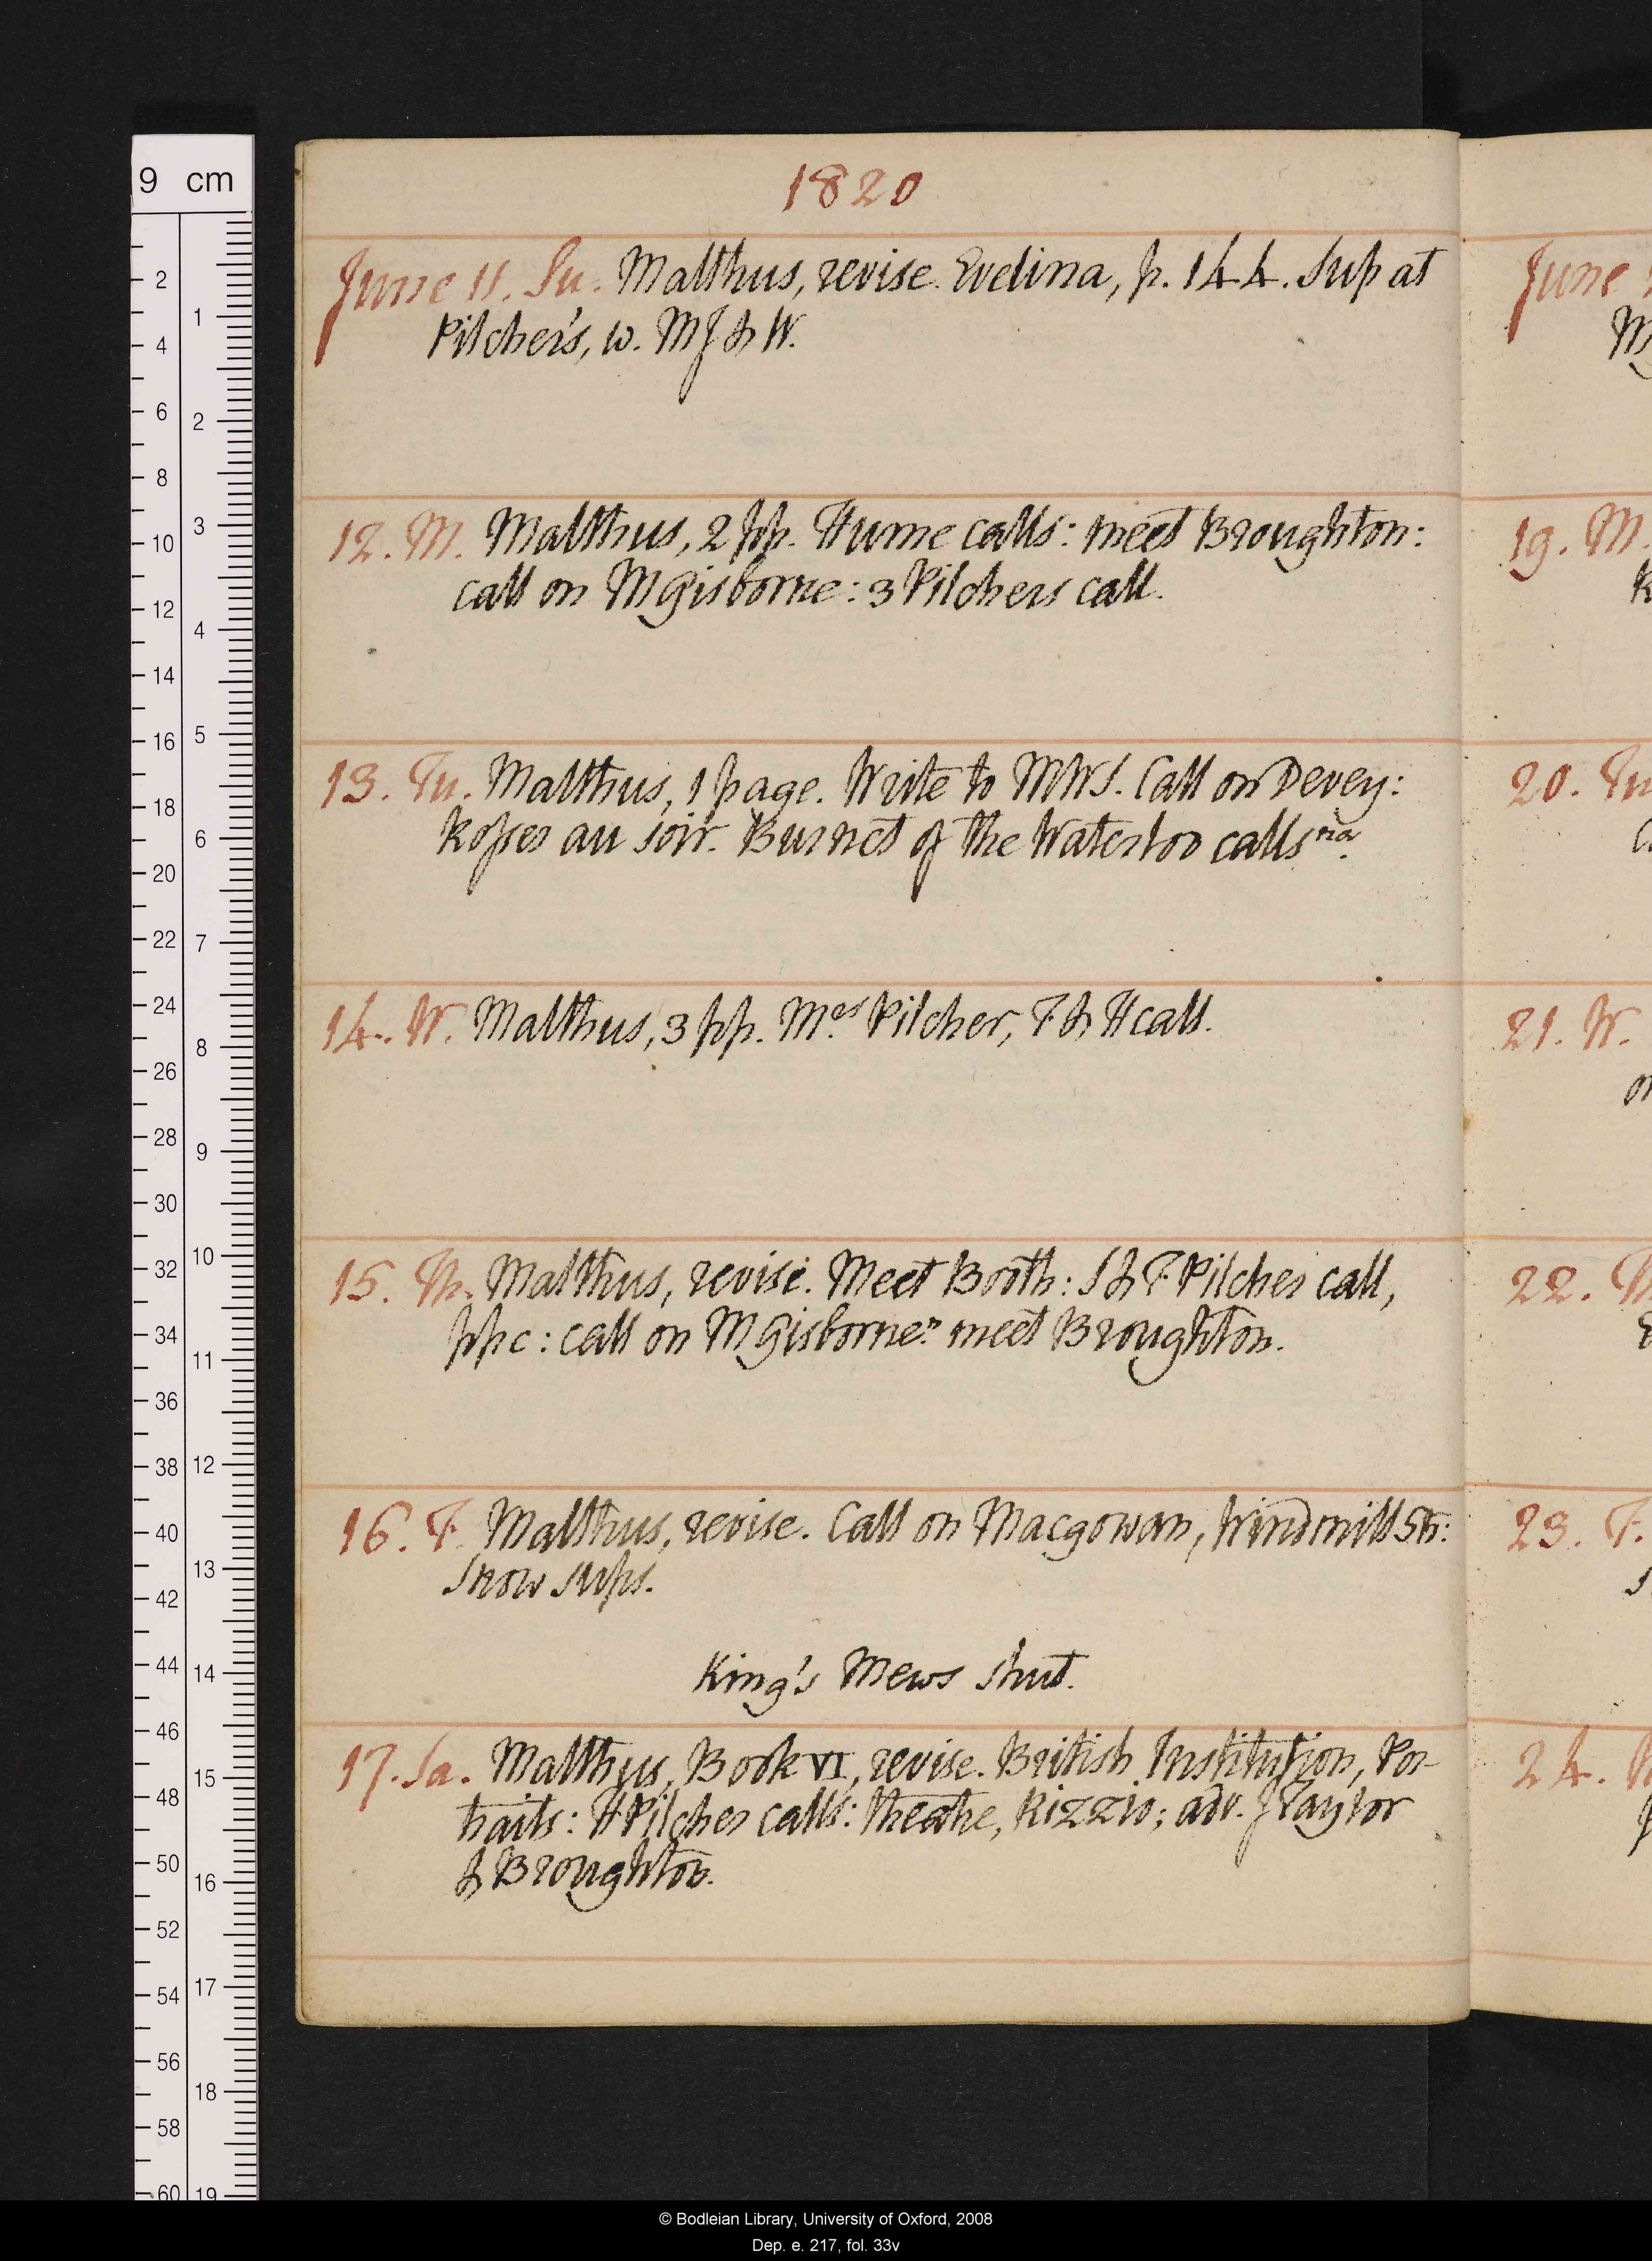 1820
June 11. Su. Malthus, revise. Evelina, p. 144. Sup at
Pilcher's, w. MJ & W.
12. M. Malthus, 2 pp. Hume calls: meet Broughton:
call on M Gisborne: 3 Pilchers call.
13. Tu. Malthus, 1 page. Write to MWS. Call on Devey:
Rosses au soir. Burnet of the Waterloo calls na.
14. W. Malthus, 3 pp. Mes Pilcher, F & H call.
15. Th. Malthus, revise. Meet Booth: S & F Pilcher call,
ppc: call on M Gisborne n: meet Broughton.
16. F. Malthus, revise. Call on Macgowan, Windmill St:
Snow sups.
King's Mews shut.
17. Sa. Malthus, Book VI, revise. British Institution, Por-
traits: H Pilcher calls: theatre, Rizzio; adv. J Taylor
& Broughton.
June
M
19. M.
20. Tu
21. W.
22.
23. F.
24.
9 cm
2 4 6 8 10 12 14 16 18 20 22 24 26 28 30 32 34 36 38 40 42 44 46 48 50 52 54 56 58 60
1 2 3 4 5 6 7 8 9 10 11 12 13 14 15 16 17 18 19
© Bodleian Library, University of Oxford, 2008
Dep. e. 217, fol. 33v